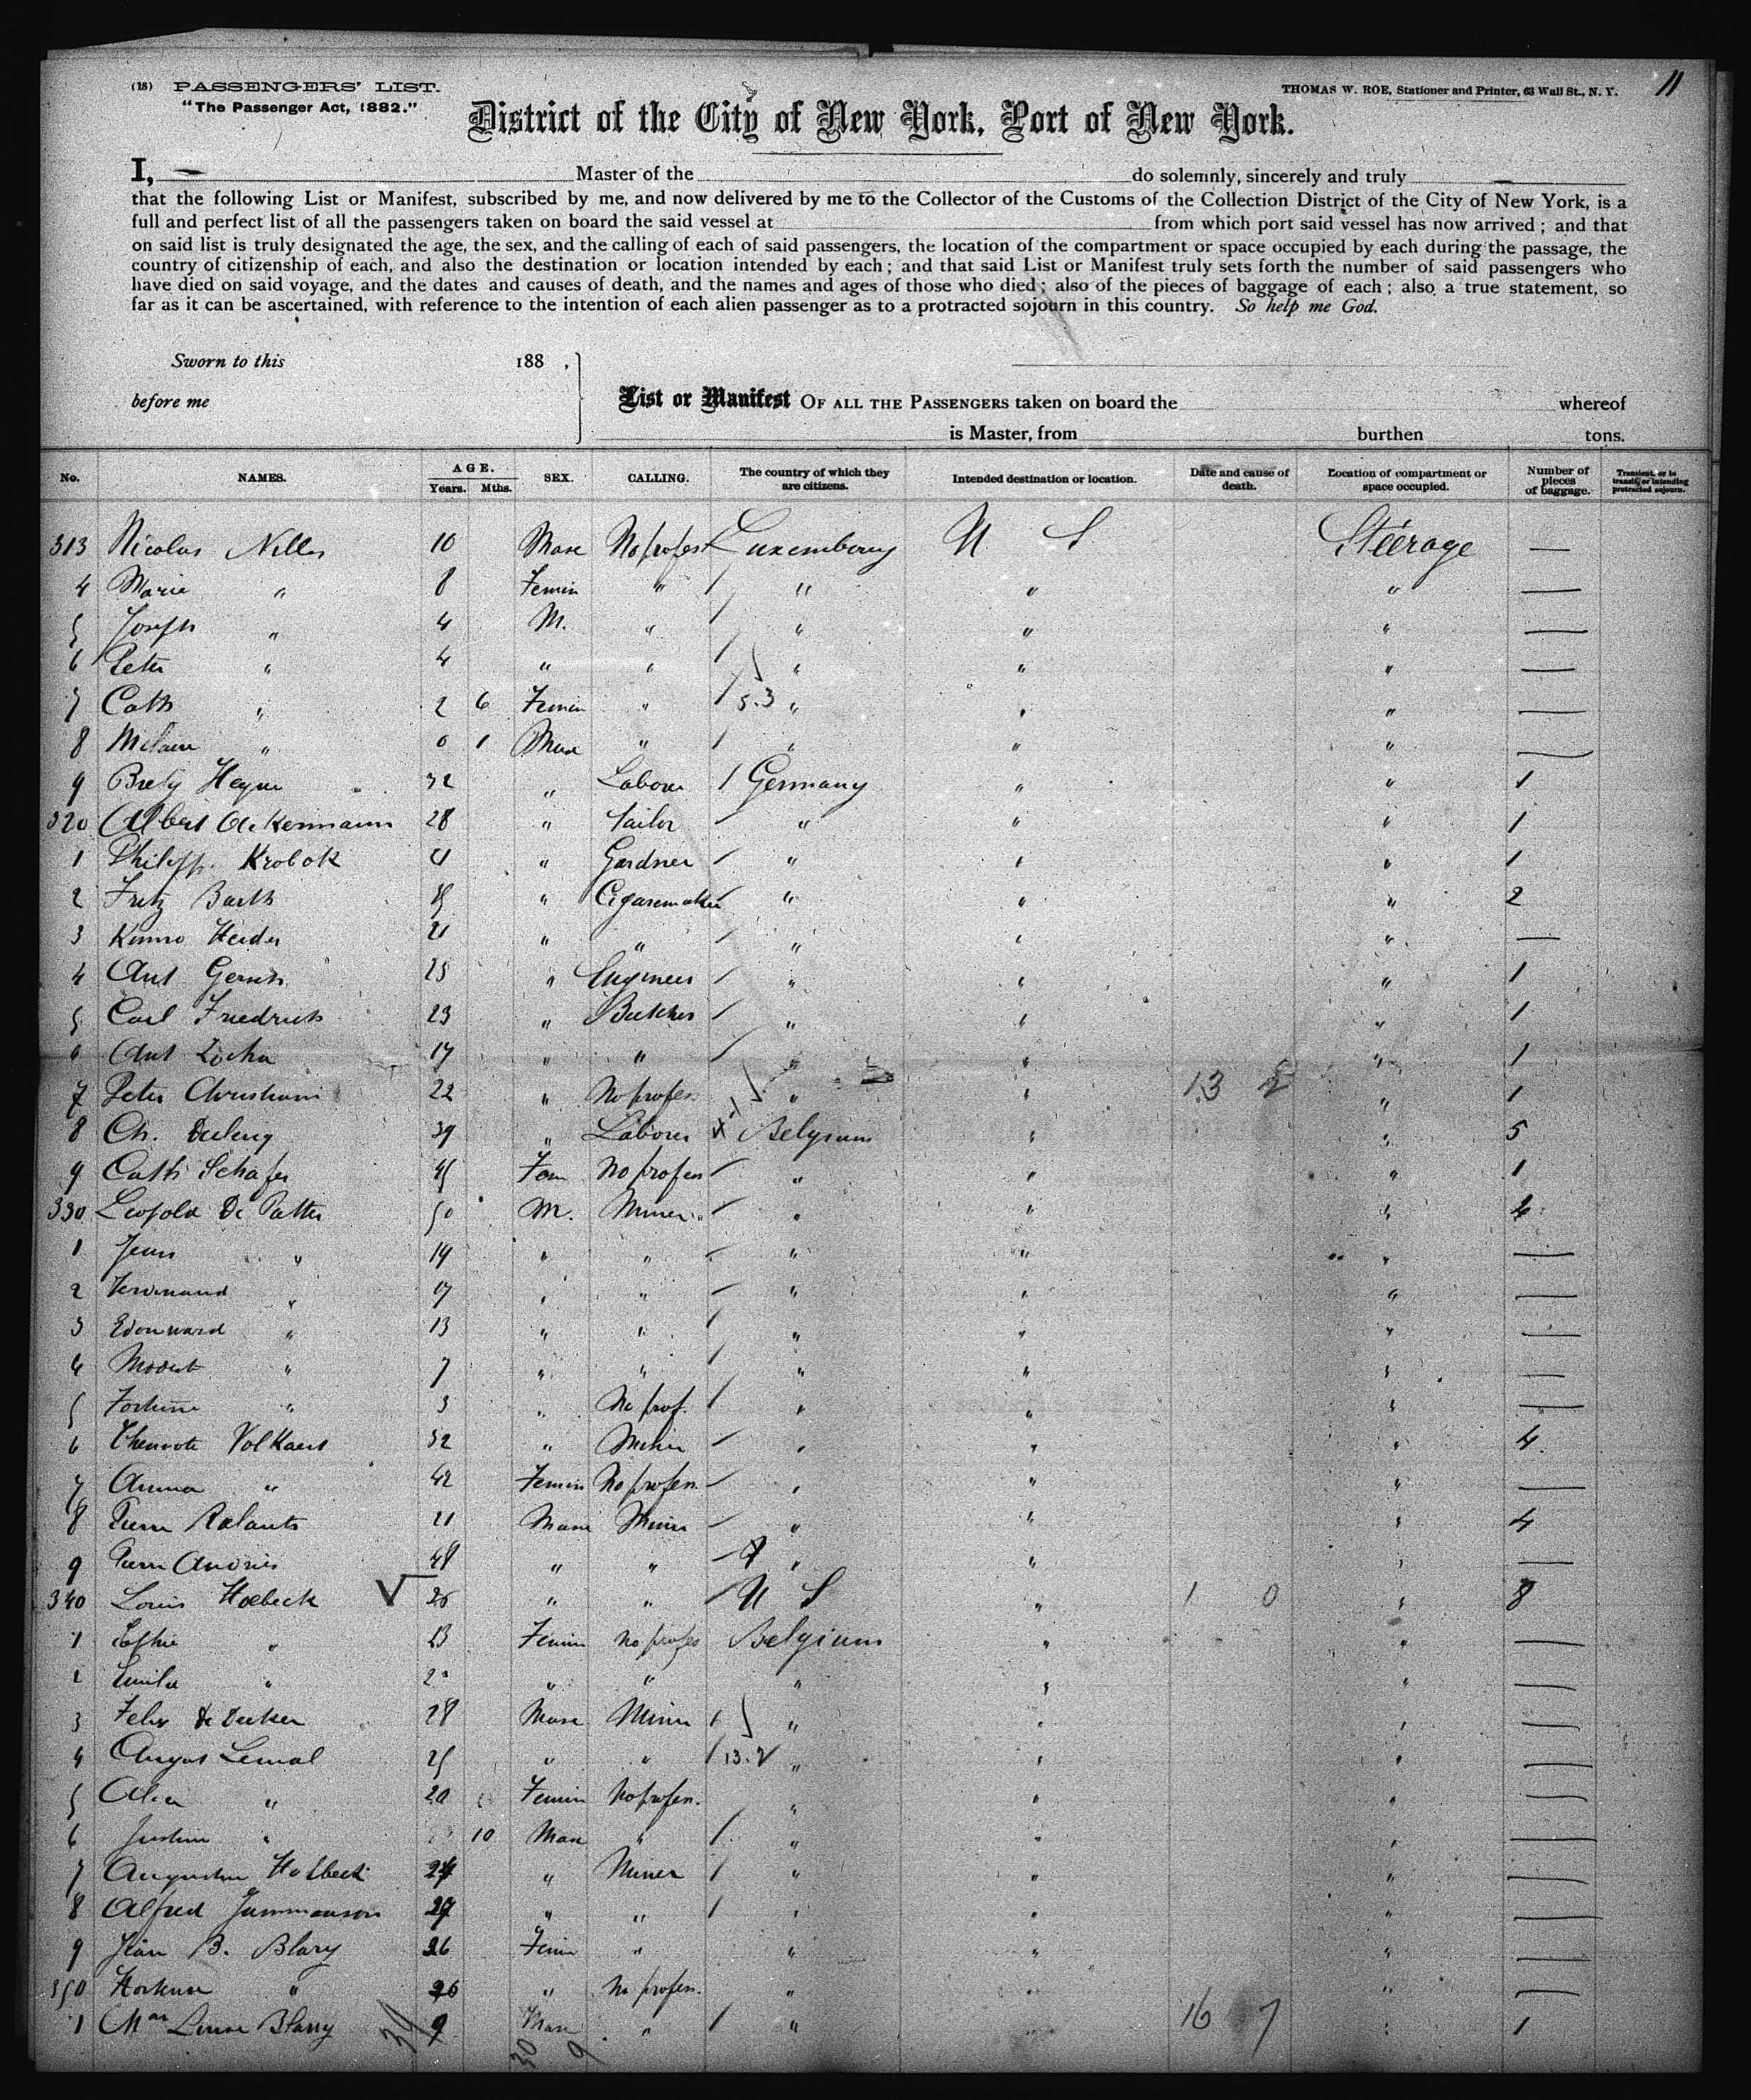 (18) PASSENGERS' LIST.
"The Passenger Act, 1882."
THOMAS W. ROE, Stationer and Printer, 63 Wall St., N. Y.
11
District of the City of New York, Port of New York.
I, Master of the do solemnly, sincerely and truly
that the following List or Manifest, subscribed by me, and now delivered by me to the Collector of the Customs of the Collection District of the City of New York, is a
full and perfect list of all the passengers taken on board the said vessel at from which port said vessel has now arrived; and that
on said list is truly designated the age, the sex, and the calling of each of said passengers, the location of the compartment or space occupied by each during the passage, the
country of citizenship of each, and also the destination or location intended by each; and that said List or Manifest truly sets forth the number of said passengers who
have died on said voyage, and the dates and causes of death, and the names and ages of those who died; also of the pieces of baggage of each; also a true statement, so
far as it can be ascertained, with reference to the intention of each alien passenger as to a protracted sojourn in this country. So help me God.
Sworn to this 188 ,
before me
List or Manifest OF ALL THE PASSENGERS taken on board the whereof
is Master, from burthen tons.
No. NAMES. AGE. Years. Mths. SEX. CALLING. The country of which they are citizens. Intended destination or location. Date and cause of death. Location of compartment or space occupied. Number of pieces of baggage. Transient, or in transit, or intending protracted sojourn.
313 Nicolas Nilles 10 Masc No profess Luxembourg U S Steerage —
4 Marie " 8 Femin " / " " " —
5 Joseph " 4 M. " / " " " —
6 Peter " 4 " " / " " " —
7 Cath " 2 6 Femin " / 5.3 " " " —
8 " 0 1 Masc " / " " " —
9 Heyne 32 " Labour / Germany " " 1
320 Albert Ackermann 28 " Tailor / " " " 1
1 Philipp. Krobok " Gardner / " " " 1
2 Fritz Barth " Cigaremaker / " " " 2
3 Heider 21 " " / " " " —
4 Ant 25 " Engineer / " " " 1
5 Carl Friedrich 23 " Butcher / " " " 1
6 Ant 17 " " / " " " 1
7 Peter Christiani 22 " No profess. / " " 13 2 " 1
8 Ch. 39 " Labour Belgium " " 5
9 Cath Schafer 45 Fem No profess / " " " 1
330 Leopold De Patter 50 M. Miner / " " " 4
1 Jean " 19 " " / " " " —
2 Ferdinand " 17 " " / " " " —
3 Edouward " 13 " " / " " " —
4 Modest " 7 " " / " " " —
5 " 3 " No prof. / " " " —
6 Volkaert 32 " Miner / " " " 4
7 Anna " 42 Femin No profess. / " " " —
8 Pierre Rolants 21 Masc Miner / " " " 4
9 Pierre Andries 48 " " / " " " —
340 Louis Holbeck √ 26 " " / U S " 1 0 " 8
1 " 23 Femin no profes Belgium " " —
2 " " " " " " —
3 Felix De Decker 28 Masc Miner / " " " —
4 August Lemal 25 " " / 13.2 " " " —
5 " 20 Femin No profess. " " " —
6 " 10 Masc " / " " " —
7 Holbeck 24 " Miner / " " " —
8 Alfred 27 " " / " " " —
9 Jean B. Blary 26 Femin " " " " —
350 Hortense " 26 " no profess. " " " —
1 Louise Blarry 9 Masc " / " " 16 7 " 1
39
30 9